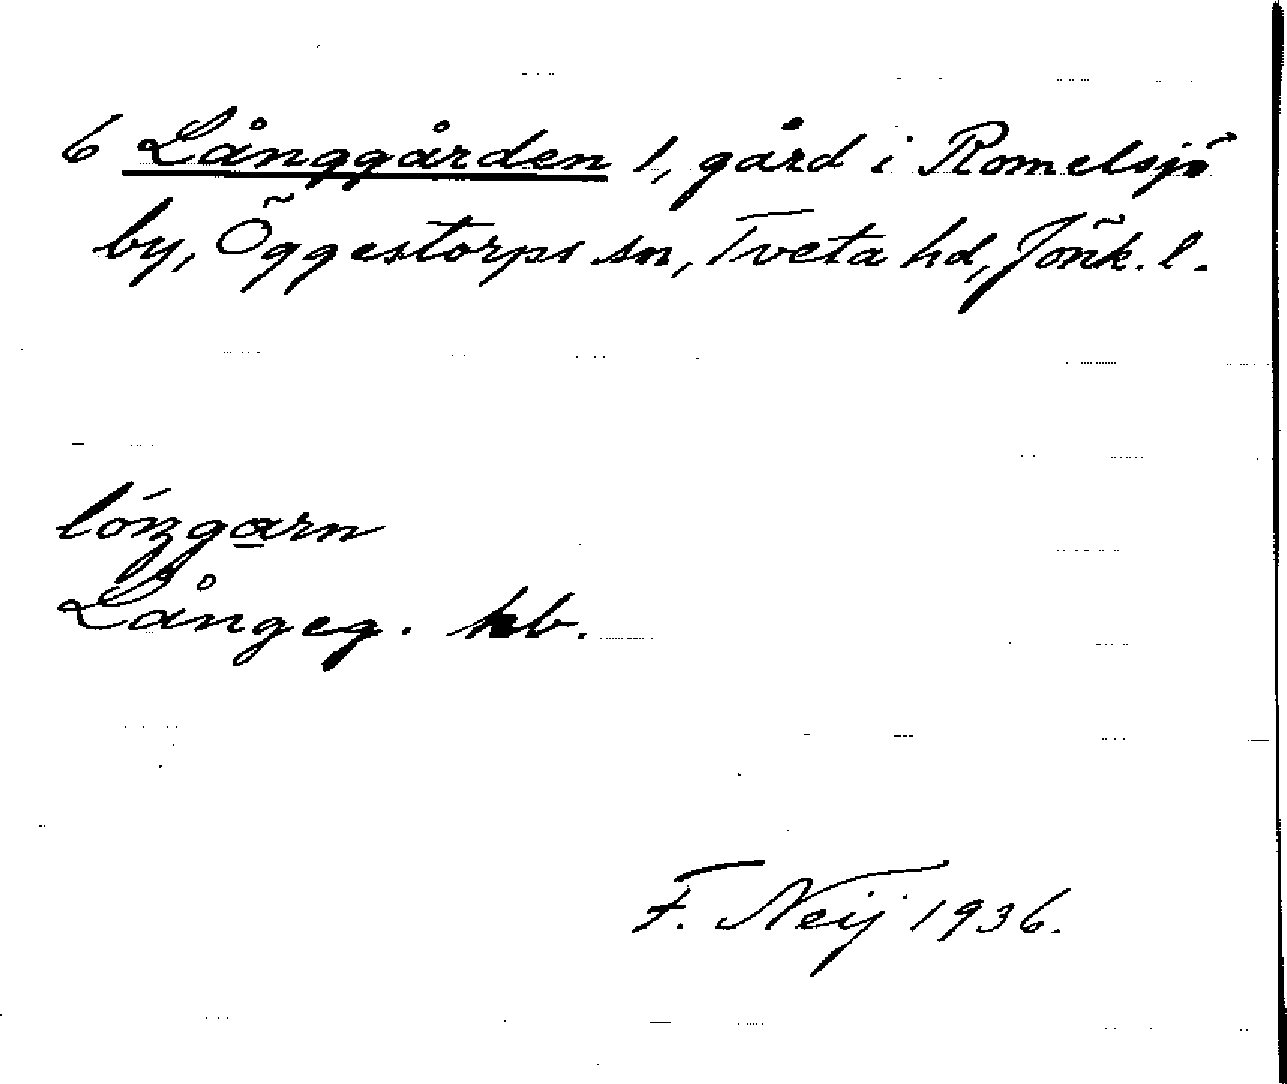 6 Långgården 1, gård i Romelsjö
by, Öggestorps sn, Tveta hd, Jönk. l.
lóŋgarn
Långeg. hb.
F. Neij 1936.